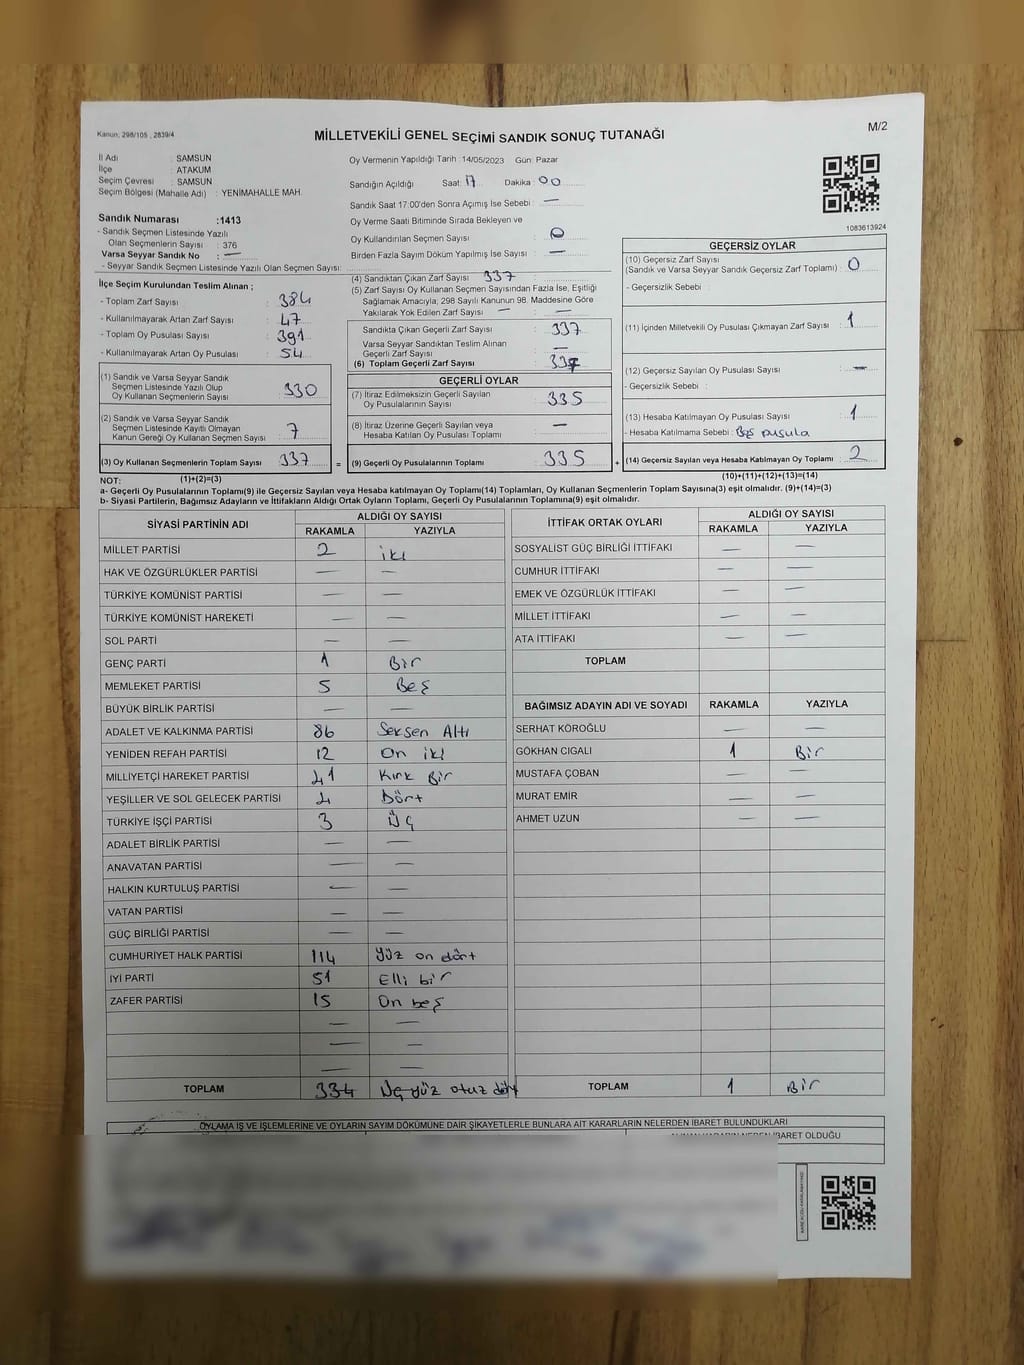 Kanun, 298/105 , 2839/4
MİLLETVEKİLİ GENEL SEÇİMİ SANDIK SONUÇ TUTANAĞI
M/2
İl Adı : SAMSUN
İlçe : ATAKUM
Seçim Çevresi : SAMSUN
Seçim Bölgesi (Mahalle Adı) : YENİMAHALLE MAH.
Sandık Numarası :1413
- Sandık Seçmen Listesinde Yazılı
Olan Seçmenlerin Sayısı : 376
Varsa Seyyar Sandık No : —
- Seyyar Sandık Seçmen Listesinde Yazılı Olan Seçmen Sayısı:
Oy Vermenin Yapıldığı Tarih : 14/05/2023 Gün: Pazar
Sandığın Açıldığı Saat: 17 Dakika : 00
Sandık Saat 17:00'den Sonra Açımış İse Sebebi : —
Oy Verme Saati Bitiminde Sırada Bekleyen ve
Oy Kullandırılan Seçmen Sayısı : 0
Birden Fazla Sayım Döküm Yapılmış İse Sayısı : —
1083613924
İlçe Seçim Kurulundan Teslim Alınan ;
- Toplam Zarf Sayısı : 384
- Kullanılmayarak Artan Zarf Sayısı : 47
- Toplam Oy Pusulası Sayısı : 391
- Kullanılmayarak Artan Oy Pusulası : 54
(1) Sandık ve Varsa Seyyar Sandık
Seçmen Listesinde Yazılı Olup
Oy Kullanan Seçmenlerin Sayısı : 330
(2) Sandık ve Varsa Seyyar Sandık
Seçmen Listesinde Kayıtlı Olmayan
Kanun Gereği Oy Kullanan Seçmen Sayısı : 7
(3) Oy Kullanan Seçmenlerin Toplam Sayısı 337
(1)+(2)=(3)
(4) Sandıktan Çıkan Zarf Sayısı : 337
(5) Zarf Sayısı Oy Kullanan Seçmen Sayısından Fazla İse, Eşitliği
Sağlamak Amacıyla; 298 Sayılı Kanunun 98. Maddesine Göre
Yakılarak Yok Edilen Zarf Sayısı — : —
Sandıkta Çıkan Geçerli Zarf Sayısı : 337
Varsa Seyyar Sandıktan Teslim Alınan
Geçerli Zarf Sayısı : —
(6) Toplam Geçerli Zarf Sayısı : 337
GEÇERLİ OYLAR
(7) İtiraz Edilmeksizin Geçerli Sayılan
Oy Pusulalarının Sayısı : 335
(8) İtiraz Üzerine Geçerli Sayılan ve
Hesaba Katılan Oy Pusulası Toplamı : —
= (9) Geçerli Oy Pusulalarının Toplamı : 335
GEÇERSİZ OYLAR
(10) Geçersiz Zarf Sayısı
(Sandık ve Varsa Seyyar Sandık Geçersiz Zarf Toplamı) : 0
- Geçersizlik Sebebi :
(11) İçinden Milletvekili Oy Pusulası Çıkmayan Zarf Sayısı : 1
(12) Geçersiz Sayılan Oy Pusulası Sayısı : —
- Geçersizlik Sebebi :
(13) Hesaba Katılmayan Oy Pusulası Sayısı : 1
- Hesaba Katılmama Sebebi : Boş pusula
+ (14) Geçersiz Sayılan veya Hesaba Katılmayan Oy Toplamı : 2
(10)+(11)+(12)+(13)=(14)
NOT:
a- Geçerli Oy Pusulalarının Toplamı(9) ile Geçersiz Sayılan veya Hesaba katılmayan Oy Toplamı(14) Toplamları, Oy Kullanan Seçmenlerin Toplam Sayısına(3) eşit olmalıdır. (9)+(14)=(3)
b- Siyasi Partilerin, Bağımsız Adayların ve İttifakların Aldığı Ortak Oyların Toplamı, Geçerli Oy Pusulalarının Toplamına(9) eşit olmalıdır.
SİYASİ PARTİNİN ADI ALDIĞI OY SAYISI
RAKAMLA YAZIYLA
MİLLET PARTİSİ 2 iki
HAK VE ÖZGÜRLÜKLER PARTİSİ — —
TÜRKİYE KOMÜNİST PARTİSİ — —
TÜRKİYE KOMÜNİST HAREKETİ — —
SOL PARTİ — —
GENÇ PARTİ 1 Bir
MEMLEKET PARTİSİ 5 Beş
BÜYÜK BİRLİK PARTİSİ — —
ADALET VE KALKINMA PARTİSİ 86 Seksen Altı
YENİDEN REFAH PARTİSİ 12 On iki
MİLLİYETÇİ HAREKET PARTİSİ 41 Kırk Bir
YEŞİLLER VE SOL GELECEK PARTİSİ 4 Dört
TÜRKİYE İŞÇİ PARTİSİ 3 Üç
ADALET BİRLİK PARTİSİ — —
ANAVATAN PARTİSİ — —
HALKIN KURTULUŞ PARTİSİ — —
VATAN PARTİSİ — —
GÜÇ BİRLİĞİ PARTİSİ — —
CUMHURİYET HALK PARTİSİ 114 Yüz on dört
İYİ PARTİ 51 Elli bir
ZAFER PARTİSİ 15 On beş
— —
— —
— —
TOPLAM 334 Üç yüz otuz dört
İTTİFAK ORTAK OYLARI ALDIĞI OY SAYISI
RAKAMLA YAZIYLA
SOSYALİST GÜÇ BİRLİĞİ İTTİFAKI — —
CUMHUR İTTİFAKI — —
EMEK VE ÖZGÜRLÜK İTTİFAKI — —
MİLLET İTTİFAKI — —
ATA İTTİFAKI — —
TOPLAM
BAĞIMSIZ ADAYIN ADI VE SOYADI RAKAMLA YAZIYLA
SERHAT KÖROĞLU — —
GÖKHAN CIGALI 1 Bir
MUSTAFA ÇOBAN — —
MURAT EMİR — —
AHMET UZUN — —
TOPLAM 1 Bir
OYLAMA İŞ VE İŞLEMLERİNE VE OYLARIN SAYIM DÖKÜMÜNE DAİR ŞİKAYETLERLE BUNLARA AİT KARARLARIN NELERDEN İBARET BULUNDUKLARI
ALINAN KARARIN NEDEN İBARET OLDUĞU